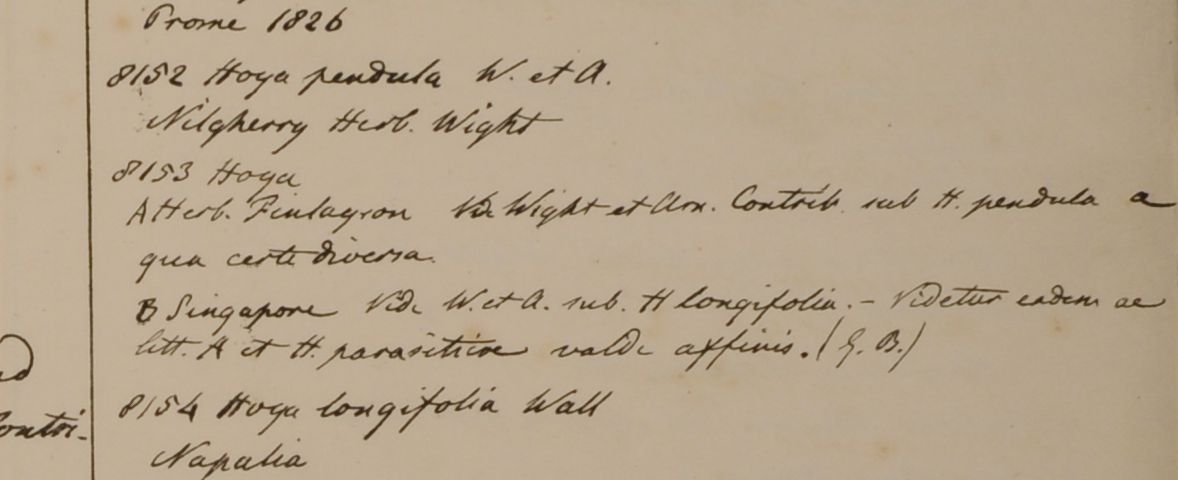 Prome 1826
8152 Hoya pendula W. et A.
Nilgherry Herb. Wight
8153 Hoya
A Herb. Finlayson Vide Wight et Arn. Contrib. sub H. pendula a
qua certe diversa.
B Singapore Vide W. et A. sub. H longifolia. - Videtur eadem ac
litt. A et H. parasiticae valde affinis. (G. B.)
8154 Hoya longifolia Wall
Napalia
ontri-